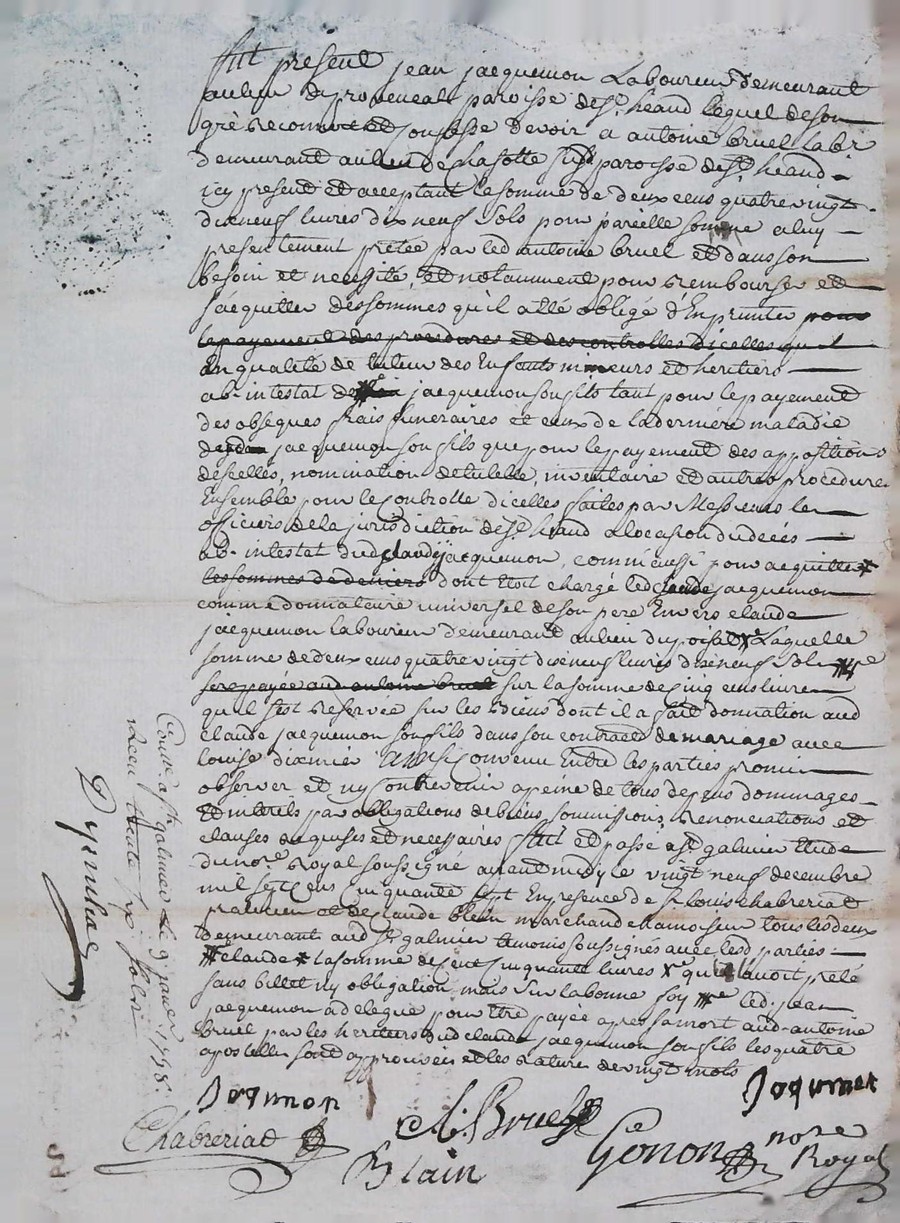 fut present jean jacquemon Laboureur demeurant
au lieu du provencal paroisse de st. heand lequel de son
gré reconnoit et confesse devoir a antoine bruel labr
demeurant au lieu de chasotte susd paroisse de st. heand
icy present et acceptant la somme de deux cens quatre vingt
dixneuf livres dix neuf sols pour pareille somme a luy
presentement pretée par led antoine bruel et dans son
besoin et necessité, et notamment pour rembourser et
sacquitter des sommes qu'il a été obligé d'Emprunter pour
le payement des procedures et des controlles dicelles quil
En qualité de tuteur des Enfants mineurs et heritiers
ab-intestat de jacquemon son fils tant pour le payement
des obseques frais funeraires et ceux de la derniere maladie
dud jacquemon son fils que pour le payement des appositions
descellés, nomination de tutelle, inventaire et autres procedures
Ensemble pour le Controlle dicelles faites par Messieurs les
officiers de la jurisdiction de st. heand a locasion du decés
ab-intestat dud claude jacquemon, comm'aussi pour acquitter
les sommes de deniers dont Etoit chargé led claude jacquemon
comme donnataire universel de son pere Envers claude
jacquemon laboureur demeurant au lieu du Laquelle
somme de deux cens quatre vingt dixneuf livres dixneuf sols
sera payée aud antoine bruel sur la somme de cinq cens livres
qu'il s'est reservée sur les Biens dont il a fait donnation aud
claude jacquemon son fils dans son contract de mariage avec
louise ainsi Convenu Entre les parties promis
observer et ny Contrevenir a peine de tous depens dommages
Et interets par obligations de biens soumissions, renonciations et
clauses requises et necessaires fait et passé a st galmier Etude
du nore Royal soussigné avant midy le vingt neuf decembre
mil sept cens cinquante sept En presence de sr Louis chabreriat
praticien et de claude blain marchand chamoiseur tous les deux
demeurants aud st galmier temoins soussignés avec lesd parties
claude la somme de cent cinquante livres qu'il avoit preté
sans billet ny obligation mais sur la bonne foy led. jean
jacquemon a delegué pour Etre payée apres sa mort aud-antoine
bruel par les heritiers dud claude jacquemon son fils les quatre
apostilles sont approuvées et les ratures de vingt mots
Joqumon
Joqumon
A. Bruel
Chabreriat
Blain
Gonon nore Royal
Contlé a st galmier Le 9 janvier 1758
Receu trente six sols